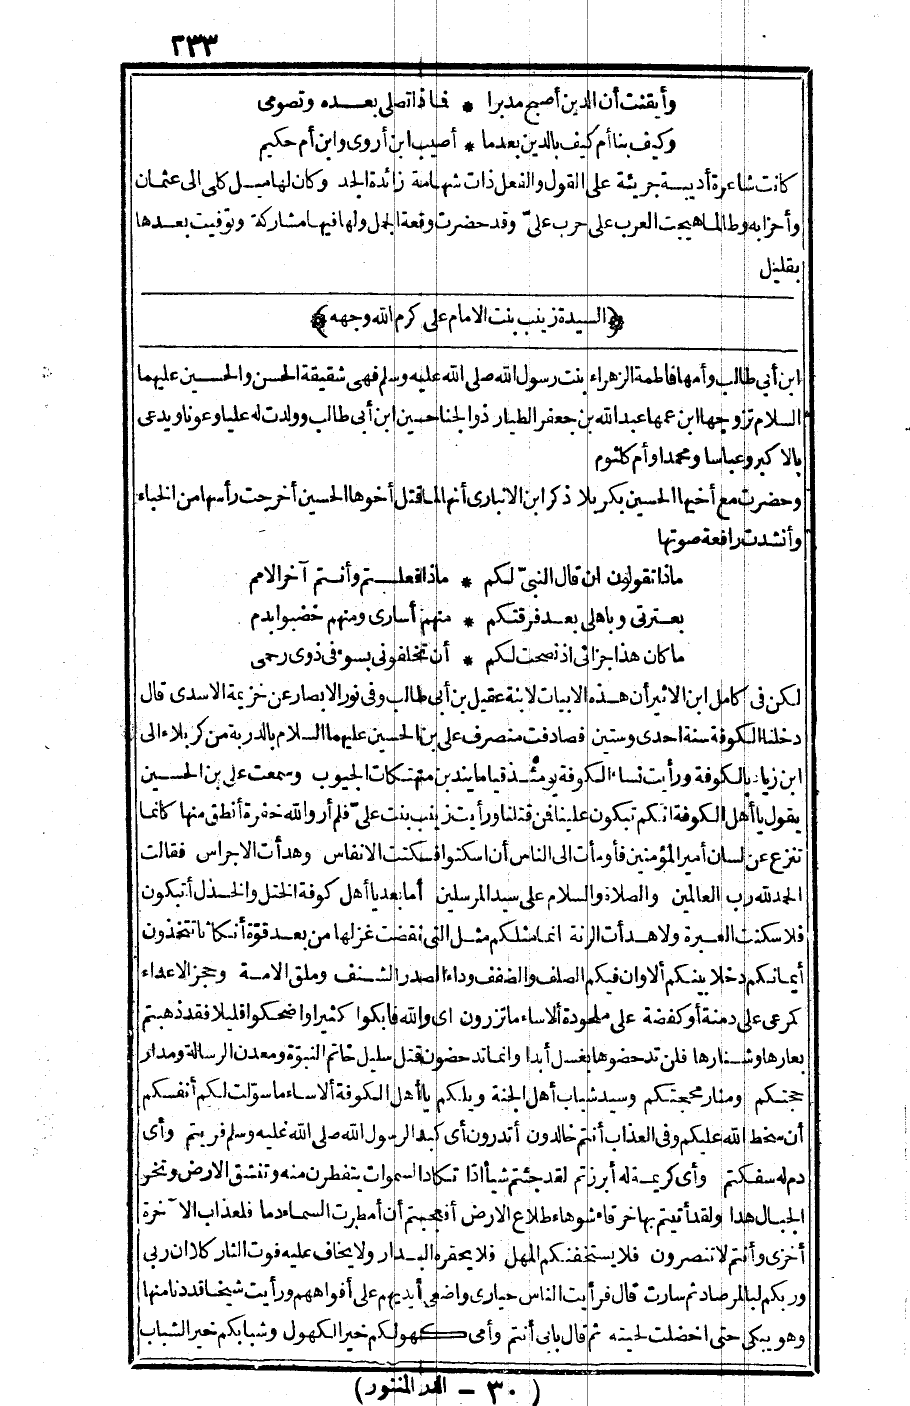 ٢٣٣
وأيقنت أن الدين أصبح مدبرا * فماذا تصلى بعده وتصومى
وكيف بنا أم كيف بالدين بعدما * أصيب ابن أروى وابن أم حكيم
كانت شاعرة أديبة جريئة على القول والفعل ذات شهامة زائدة الحد وكان لها ميل كلى الى عثمان
وأحزابه وطالما هيجت العرب على حرب علىّ وقد حضرت وقعة الجمل ولها فيها مشاركة وتوفيت بعدها
بقليل
﴿السيدة زينب بنت الامام على كرم الله وجهه﴾
ابن أبى طالب وأمها فاطمة الزهراء بنت رسول الله صلى الله عليه وسلم فهى شقيقة الحسن والحسين عليهما
السلام تزوجها ابن عمها عبد الله بن جعفر الطيار ذو الجناحين ابن أبى طالب وولدت له عليا وعونا ويدعى
بالاكبر وعباسا ومحمدا وأم كلثوم
وحضرت مع أخيها الحسين بكربلا ذكر ابن الانبارى أنها لما قتل أخوها الحسين أخرجت رأسها من الخباء
وأنشدت رافعة صوتها
ماذا تقولون ان قال النبىّ لكم * ماذا فعلتم وأنتم آخر الامم
بعترتى وباهلى بعد فرقتكم * منهم أسارى ومنهم خضبوا بدم
ما كان هذا جزائى اذ نصحت لكم * أن تخلفونى بسوء فى ذوى رحمى
لكن فى كامل ابن الاثير أن هذه الابيات لابنة عقيل بن أبى طالب وفى نور الابصار عن خزيمة الاسدى قال
دخلنا الكوفة سنة احدى وستين فصادفت منصرف على بن الحسين عليهما السلام بالذرية من كربلاء الى
ابن زياد بالكوفة ورأيت نساء الكوفة يومئذ قياما يندبن متهتكات الجيوب وسمعت على بن الحسين
يقول يا أهل الكوفة انكم تبكون علينا فمن قتلنا ورأيت زينب بنت علىّ فلم أر والله خفرة أنطق منها كانما
تنزع عن لسان أمير المؤمنين فأومأت الى الناس أن اسكتوا فسكنت الانفاس وهدأت الاجراس فقالت
الحمد لله رب العالمين والصلاة والسلام على سيد المرسلين أما بعد يا أهل كوفة الختل والخذل أتبكون
فلا سكنت العبرة ولا هدأت الرنة انما مثلكم مثل التى نقضت غزلها من بعد قوّة أنكاثا تتخذون
أيمانكم دخلا بينكم ألا وان فيكم الصلف والضعف وداء الصدر الشنف وملق الامة وحجز الاعداء
كمرعى على دمنة أو كفضة على ملحودة ألا ساء ما تزرون اى والله فابكوا كثيرا واضحكوا قليلا فقد ذهبتم
بعارها وشنارها فلن تدحضوها بغسل أبدا وانما تدحضون قتل سليل خاتم النبوّة ومعدن الرسالة ومدار
حجتكم ومنار محجتكم وسيد شباب أهل الجنة ويلكم يا أهل الكوفة ألا ساء ما سوّلت لكم أنفسكم
أن سخط الله عليكم وفى العذاب أنتم خالدون أتدرون أى كبد لرسول الله صلى الله عليه وسلم فريتم وأى
دم له سفكتم وأى كريمة له أبرزتم لقد جئتم شيأ ادّا تكاد السموات يتفطرن منه وتنشق الارض وتخر
الجبال هدا ولقد أتيتم بها خرقاء شوهاء طلاع الارض أفعجبتم أن أمطرت السماء دما فلعذاب الآخرة
أخزى وأنتم لا تنصرون فلا يستخفنكم المهل فلا يحفزه البدار ولا يخاف عليه فوت الثار كلا ان ربى
وربكم لبالمرصاد ثم سارت قال فرأيت الناس حيارى واضعى أيديهم على أفواههم ورأيت شيخا قد دنا منها
وهو يبكى حتى اخضلت لحيته ثم قال بابى أنتم وأمى كهولكم خير الكهول وشبابكم خير الشباب
(٣٠ - الدر المنثور)